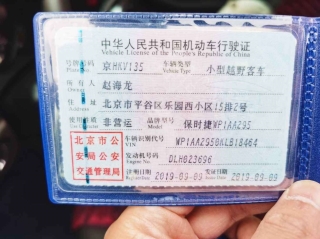 中华人民共和国机动车行驶证
Vehicle License of the People's Republic of China
号牌号码 京HKV135 车辆类型 小型越野客车
Vehicle Type
所有人 赵海龙
住址 北京市平谷区乐园西小区15排2号
使用性质 非营运 品牌型号 保时捷WP1AA295
北京市公安局公安交通管理局
车辆识别代号 WP1AA2950KLB18464
VIN
发动机号码 DLH023696
Engine No.
注册日期 2019-09-09 发证日期 2019-09-09